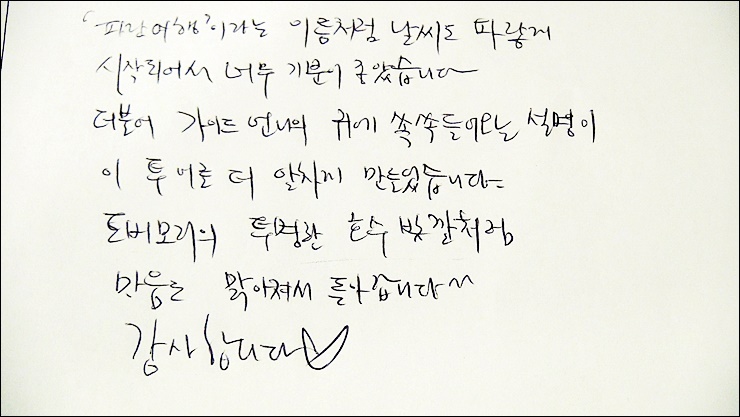 '파란여행'이라는 이름처럼 날씨도 파랗게
시작되어서 너무 기분이 좋았습니다~
더불어 가이드 언니의 귀에 쏙쏙들어오는 설명이
이 투어를 더 알차게 만들었습니다~
토버모리의 투명한 호수 빛깔처럼
마음도 맑아져서 돌아갑니다^^
감사합니다♡